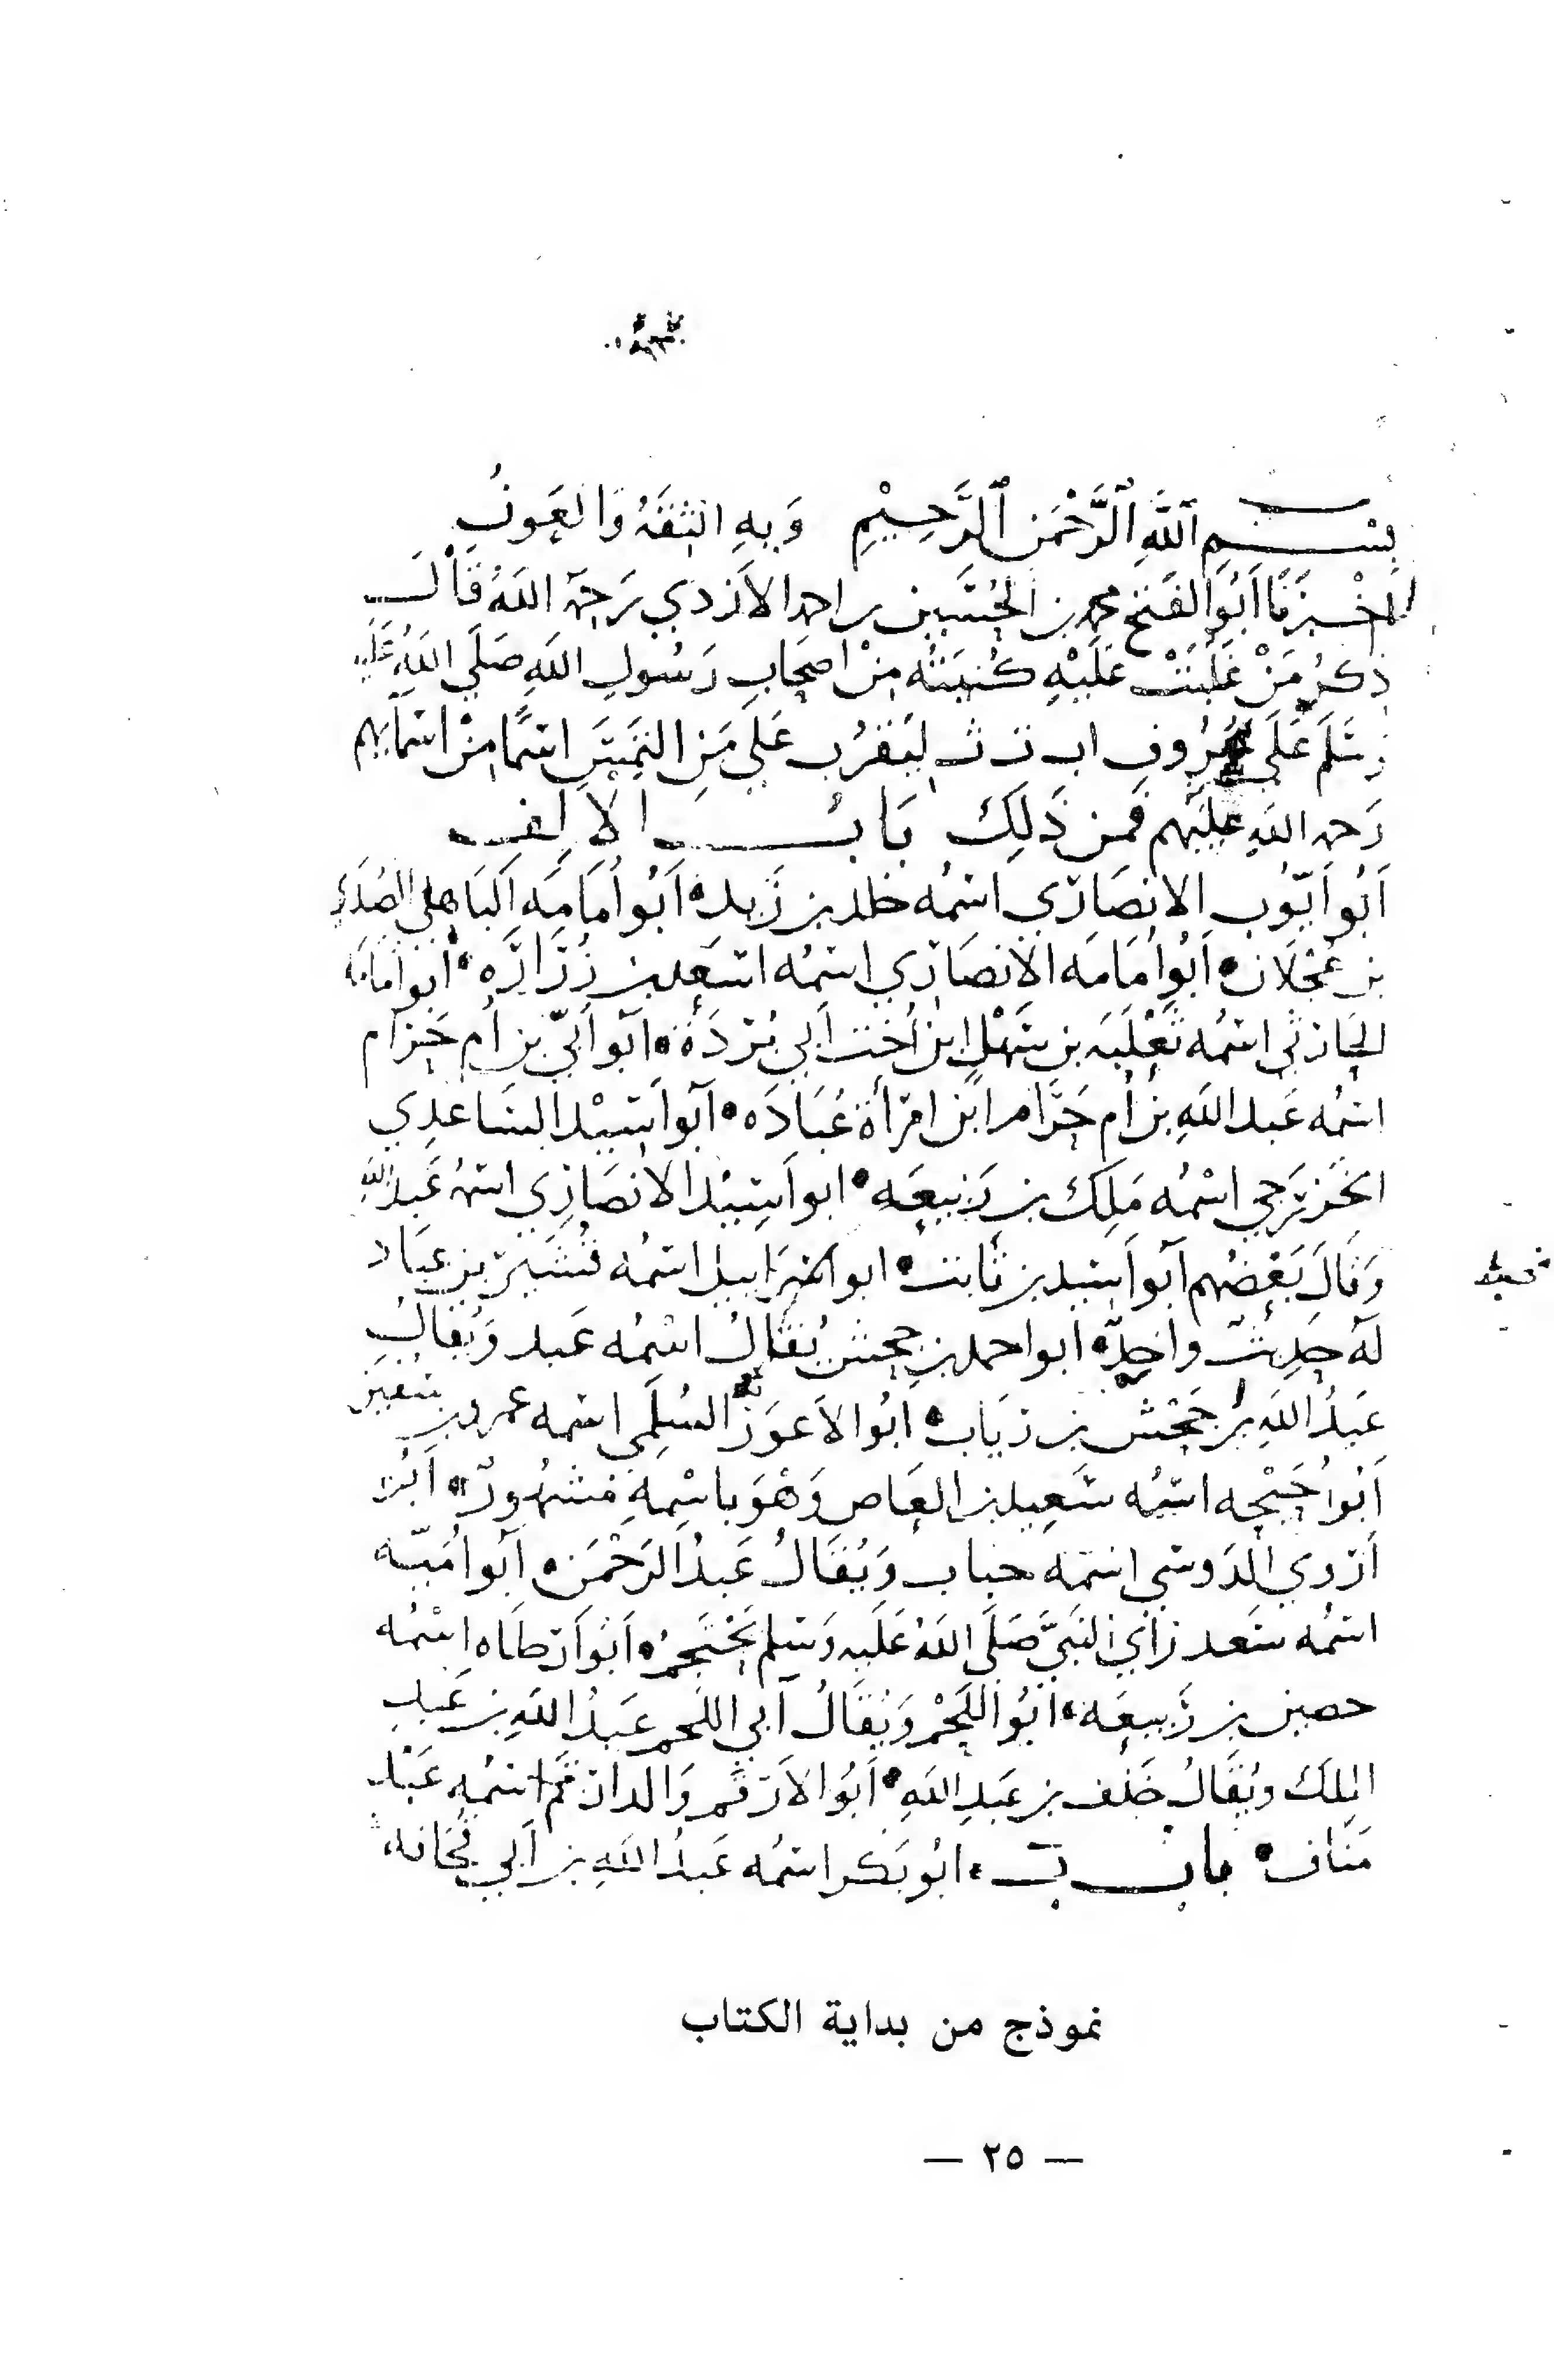 بِسْمِ ٱللَّهِ ٱلرَّحْمَنِ ٱلرَّحِيْمِ وَبِهِ الثِقَةُ وَالعَونُ
أخْبَرَنَا أَبُو الفَتح محمد بن الحُسَيِن بن احمد الأَزدي رَحِمَهُ اللَهُ قَالَ
ذِكرُ مَنْ غَلَبَتْ عَلَيْهِ كُنيَتُه مِنْ اصحَابِ رَسُولِ اللَهِ صَلَى اللَهُ عَلَيه
وَسَلَمَ عَلَى حُرُوفِ ا ب ت ث لِيَقرُب عَلى مَنِ التَمَسَ اسمًا مِنْ اسمَائهم
رَحمه اللَهِ عليهم فَمن ذَلِكَ بَابُ الالِفِ
أَبُو أَيّوُب الانصَارِي اسمُه خلد بن زَيد ه أَبُو أُمَامَه اَلبَاهِلى الصُدَي
بن عَجْلَان ه أَبُو أُمَامَه الأنصَارِي اسمُه اسَعد بن زُرَارَه ه أبو امامَه
الحَارثي اسمُه ثَعْلَبَه بن سَهْلٍ ابنُ أُخت أَبي بُردَة ه أبو أُبَيّ بن أُم حَرَام
اسمُه عَبد اللَهِ بن أُم حَرَام ابن امرَأة عُبَادَه ه أبو أُسَيْد السَاعدِي
الخَزرَجي اسْمُه مَلِك بن رَبيعَه ه ابو اَسِيد الانصَارِي اسمُه عَبد الله
وَقالَ بَعْضُهم أبو أَسِيد بن ثَابت ه ابو اسمُه بن عبَاد
لَهُ حَدِيثٌ واحِدٌ ه ابو احمد بن جحش يُقَالُ اسْمُه عَبد وَيُقالُ
عَبدُ اللَهِ بن جَحْش بن رِيَاب ه ابُو الأَعوَر السُلَمِى اسمه عمرو بن سُفين
أَبُو أُحَيْحه اسمُه سَعِيد بن العَاص وَهُوَ باسْمِهِ مَشهُورٌ ه أَبُو
أَروي الدَوسِي اسمَه حباب وَيُقَالُ عَبدُ الرَحْمَن ه أَبو أُمَيّه
اسمُه سَعد رَأي النَبيَّ صَلَى اللَهُ عَلَيه وَسَلم يَحْتَجِمُ ه أَبو أَرطَاه اسْمُه
حصين بن رَبيعَه ه أبُو اللَحْم وَيُقَالُ آبي اللَحم عَبدُ اللَهِ بن عَبدِ
المِلَك ويُقَالُ خَلَف بن عَبدِ اللَهِ ه أَبُو الأَرقَم وَالد ارقم اسمُه عَبْد
مَنَاف ه باب بَ ه ابُو بَكر اسمُه عَبدُ اللَهِ بن أَبي قُحَافه
نموذج من بداية الكتاب
— ٢٥ —